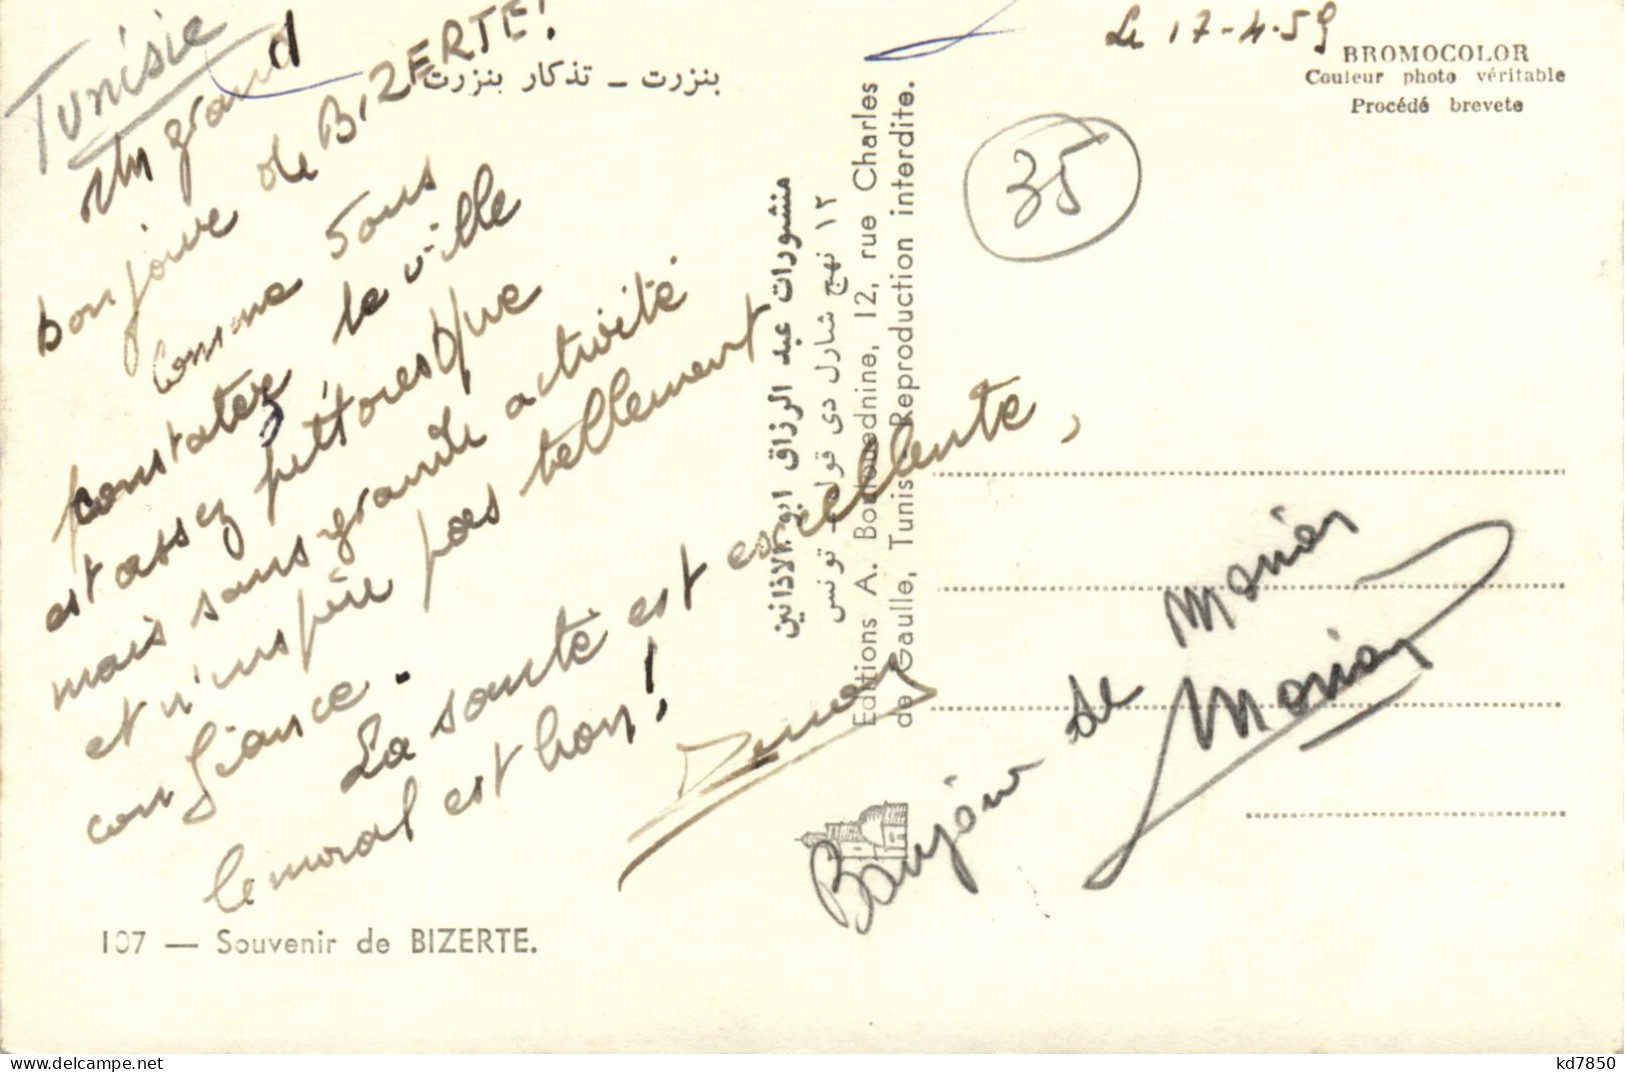 Tunisie
Le 17-4-59
BROMOCOLOR
Couleur photo véritable
Procédé brevete
بنزرت ــ تذكار بنزرت
35
Un grand
bonjour de BIZERTE!
Comme vous
constatez la ville
est assez pittoresque
mais sans grande activité
et n'inspire pas tellement
confiance.
La santé est excellente,
le moral est bon!
منشورات عبد الرزاق ابو الاذانين
١٢ نهج شارل دي قول ــ تونس
Editions A. Boulouednine, 12, rue Charles
de Gaulle, Tunis. Reproduction interdite.
Bonjour de
107 — Souvenir de BIZERTE.
kd7850